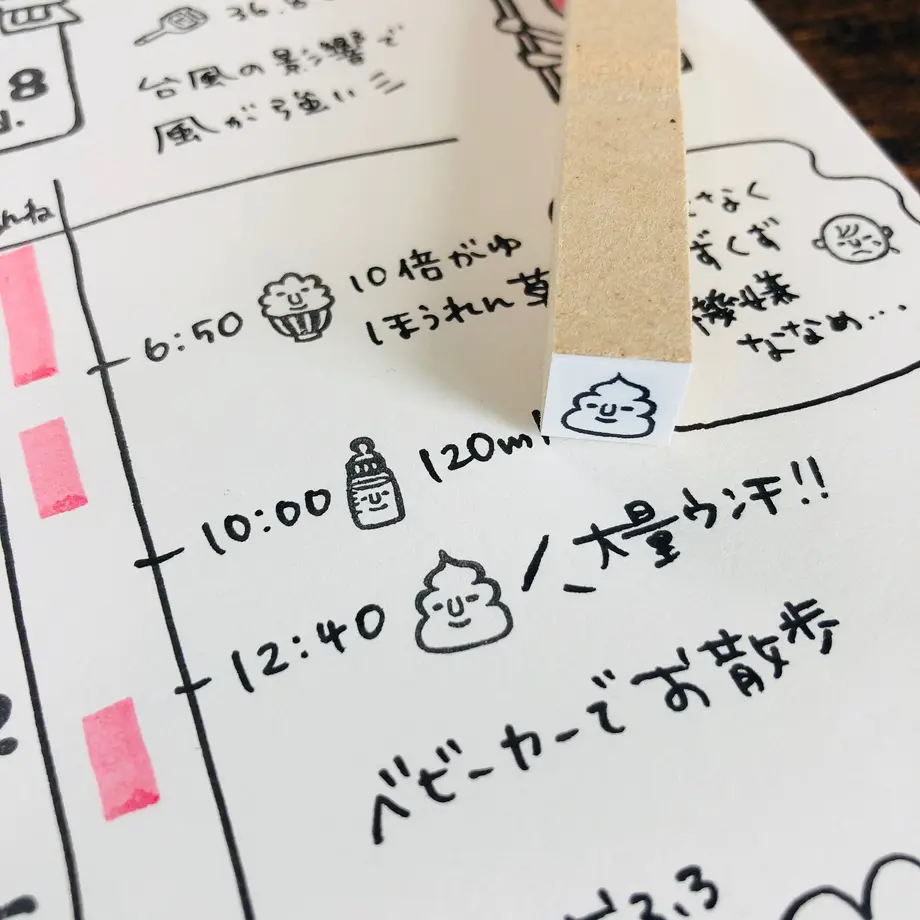 8
36.8
台風の影響で
風が強い
んね
6:50 10倍がゆ
ほうれん草
なく
ずくず
機嫌
ななめ…
10:00 120ml
12:40 大量ウンチ!!
ベビーカーでお散歩